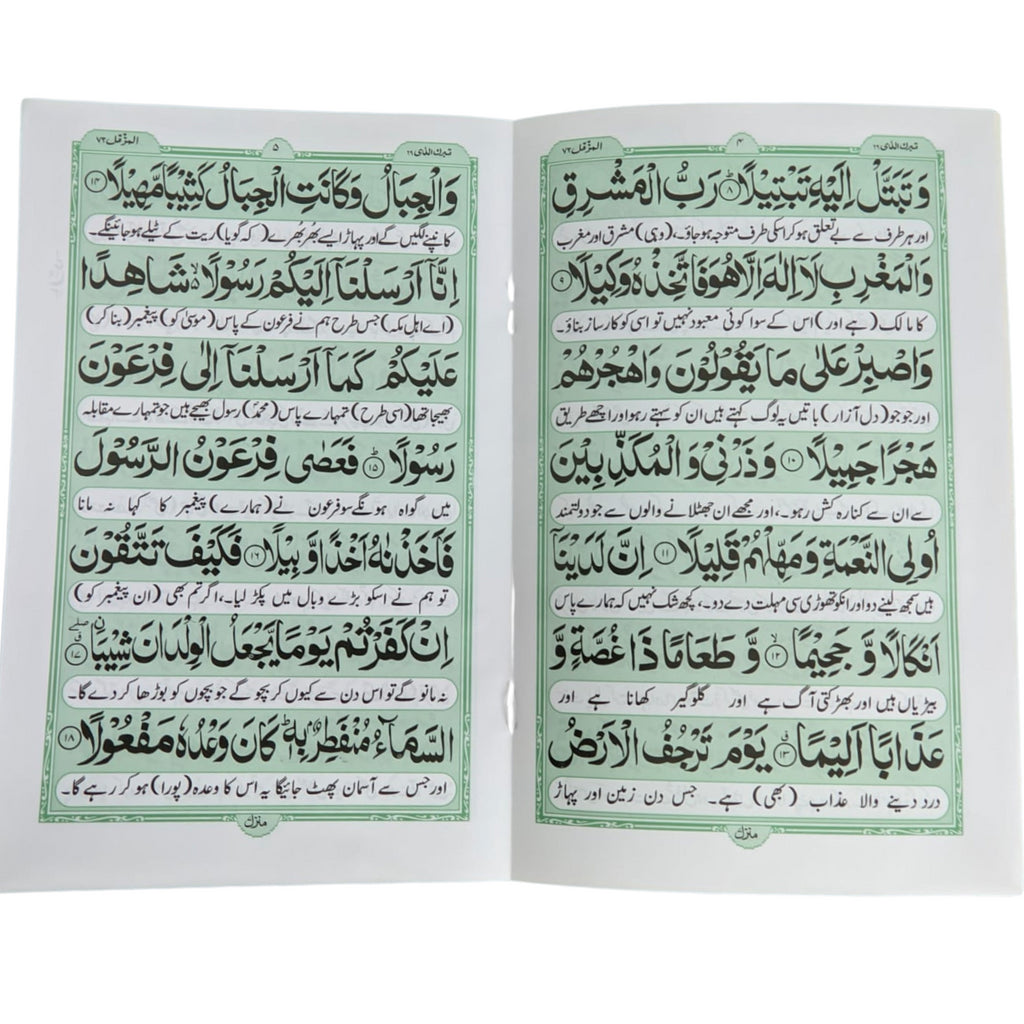 تبرك الذى ٢٩
٤
المزمل ٧٣
وَ تَبَتَّلْ اِلَيْهِ تَبْتِيْلًا ؕ﴿۸﴾ رَبُّ الْمَشْرِقِ
اور ہر طرف سے بے تعلق ہو کر اسکی طرف متوجہ ہو جاؤ۔ (وہی) مشرق اور مغرب
وَالْمَغْرِبِ لَاۤ اِلٰهَ اِلَّا هُوَ فَاتَّخِذْهُ وَكِيْلًا ﴿۹﴾
کا مالک (ہے اور) اس کے سوا کوئی معبود نہیں تو اسی کو کارساز بناؤ۔
وَاصْبِرْ عَلٰى مَا يَقُوْلُوْنَ وَاهْجُرْهُمْ
اور جو جو (دل آزار) باتیں یہ لوگ کہتے ہیں ان کو سہتے رہو اور اچھے طریق
هَجْرًا جَمِيْلًا ﴿۱۰﴾ وَ ذَرْنِيْ وَ الْمُكَذِّبِيْنَ
سے ان سے کنارہ کش رہو۔، اور مجھے ان جھٹلانے والوں سے جو دولتمند
اُولِى النَّعْمَةِ وَ مَهِّلْهُمْ قَلِيْلًا ﴿۱۱﴾ اِنَّ لَدَيْنَاۤ
ہیں سمجھ لینے دو اور انکو تھوڑی سی مہلت دے دو۔، کچھ شک نہیں کہ ہمارے پاس
اَنْكَالًا وَّ جَحِيْمًا ۙ﴿۱۲﴾ وَّ طَعَامًا ذَا غُصَّةٍ وَّ
بیڑیاں ہیں اور بھڑکتی آگ ہے اور گلوگیر کھانا ہے اور
عَذَابًا اَلِيْمًا ۗ﴿۱۳﴾ يَوْمَ تَرْجُفُ الْاَرْضُ
درد دینے والا عذاب (بھی) ہے۔ جس دن زمین اور پہاڑ
منزل
تبرك الذى ٢٩
٥
المزمل ٧٣
وَالْجِبَالُ وَكَانَتِ الْجِبَالُ كَثِيْبًا مَّهِيْلًا ﴿۱۴﴾
کانپنے لگیں گے اور پہاڑ ایسے بھر بھرے (کہ گویا) ریت کے ٹیلے ہو جائینگے۔
اِنَّاۤ اَرْسَلْنَاۤ اِلَيْكُمْ رَسُوْلًا ۙ شَاهِدًا
(اے اہل مکہ) جس طرح ہم نے فرعون کے پاس (موسیٰ کو) پیغمبر (بنا کر)
عَلَيْكُمْ كَمَاۤ اَرْسَلْنَاۤ اِلٰى فِرْعَوْنَ
بھیجا تھا (اسی طرح) تمہارے پاس (محمدؐ) رسول بھیجے ہیں جو تمہارے مقابلہ
رَسُوْلًا ؕ﴿۱۵﴾ فَعَصٰى فِرْعَوْنُ الرَّسُوْلَ
میں گواہ ہونگے سو فرعون نے (ہمارے) پیغمبر کا کہا نہ مانا
فَاَخَذْنٰهُ اَخْذًا وَّبِيْلًا ﴿۱۶﴾ فَكَيْفَ تَتَّقُوْنَ
تو ہم نے اسکو بڑے وبال میں پکڑ لیا۔، اگر تم بھی (ان پیغمبر کو)
اِنْ كَفَرْتُمْ يَوْمًا يَّجْعَلُ الْوِلْدَانَ شِيْبَا ۨ ﴿۱۷﴾
نہ مانو گے تو اس دن سے کیوں کر بچو گے جو بچوں کو بوڑھا کر دے گا۔
السَّمَآءُ مُنْفَطِرٌۢ بِهٖ ؕ كَانَ وَعْدُهٗ مَفْعُوْلًا ﴿۱۸﴾
اور جس سے آسمان پھٹ جائیگا یہ اس کا وعدہ (پورا) ہو کر رہے گا۔
منزل